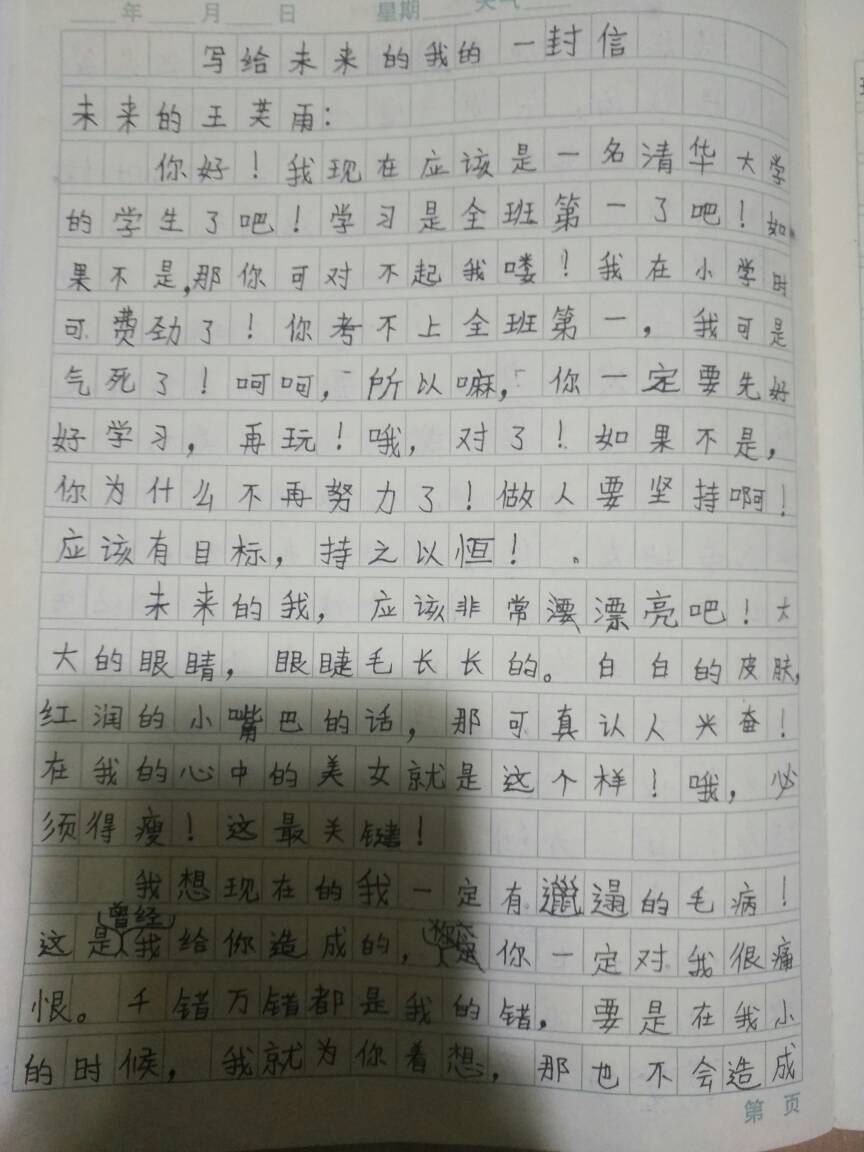 年 月 日 星期 天气
写给未来的我的一封信
未来的王芙雨：
你好！我现在应该是一名清华大学
的学生了吧！学习是全班第一了吧！如
果不是，那你可对不起我喽！我在小学时
可费劲了！你考不上全班第一，我可是
气死了！呵呵，所以嘛，你一定要先好
好学习，再玩！哦，对了！如果不是，
你为什么不再努力了！做人要坚持啊！
应该有目标，持之以恒！。
未来的我，应该非常漂亮吧！大
大的眼睛，眼睫毛长长的。白白的皮肤，
红润的小嘴巴的话，那可真认人兴奋！
在我的心中的美女就是这个样！哦，必
须得瘦！这最关键！
我想现在的我一定有邋遢的毛病！
这是曾经我给你造成的，你一定对我很痛
恨。千错万错都是我的错，要是在我小
的时候，我就为你着想，那也不会造成
第 页